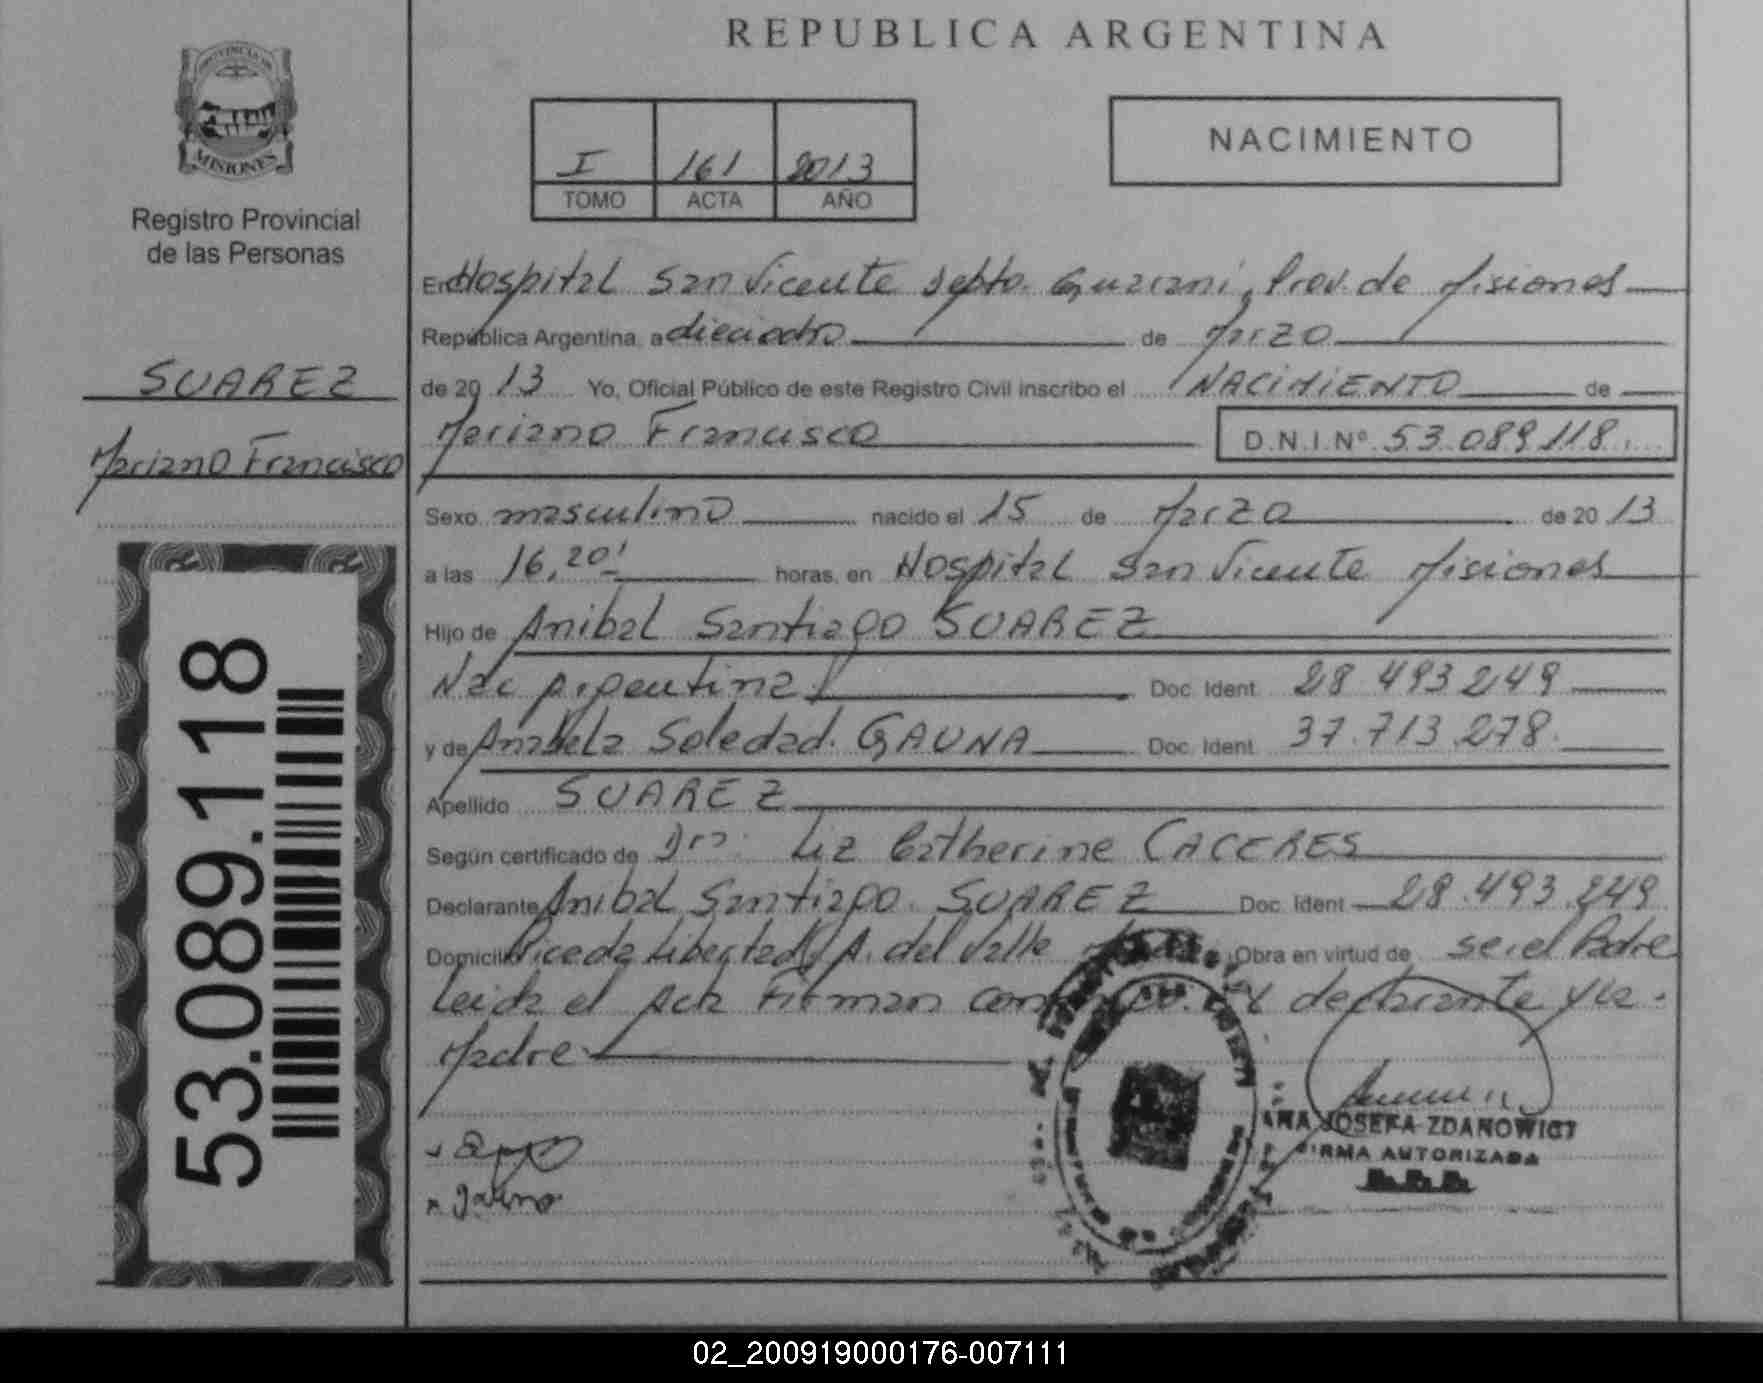 REPUBLICA ARGENTINA
PROVINCIA DE
MISIONES
Registro Provincial
de las Personas
I 161 2013
TOMO ACTA AÑO
NACIMIENTO
SUAREZ
Mariano Francisco
53.089.118
En Hospital San Vicente Depto. Guarani, Prov. de Misiones
República Argentina, a dieciocho de Marzo
de 20 13 Yo, Oficial Público de este Registro Civil inscribo el NACIMIENTO de
Mariano Francisco D.N.I.Nº 53.089.118.
Sexo masculino nacido el 15 de Marzo de 20 13
a las 16,20' horas, en Hospital San Vicente Misiones
Hijo de Anibal Santiago SUAREZ
Nac Argentina Doc. Ident. 28.493.249
y de Anabela Soledad GAUNA Doc. Ident. 37.713.278.
Apellido SUAREZ
Según certificado de Dra. Liz Catherine CACERES
Declarante Anibal Santiago SUAREZ Doc. Ident. 28.493.249
Domicilio Picada Libertad A. del Valle Obra en virtud de ser el Padre
Leida el Acta Firman declarante y la
Madre
Gauna
ANA JOSEFA ZDANOWICZ
FIRMA AUTORIZADA
02_200919000176-007111